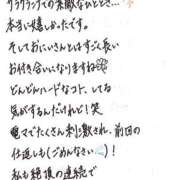 リラックスでの素敵なひととき…
本当に嬉しかったです。
そしておにいさんとはすごく長い
お付き合いになりますね
どんどんハードなコト、してる
気がするんだけれど!笑
電マでたくさん刺激され、前回の
仕返しも(ごめんなさい)!
私も絶頂の連続で